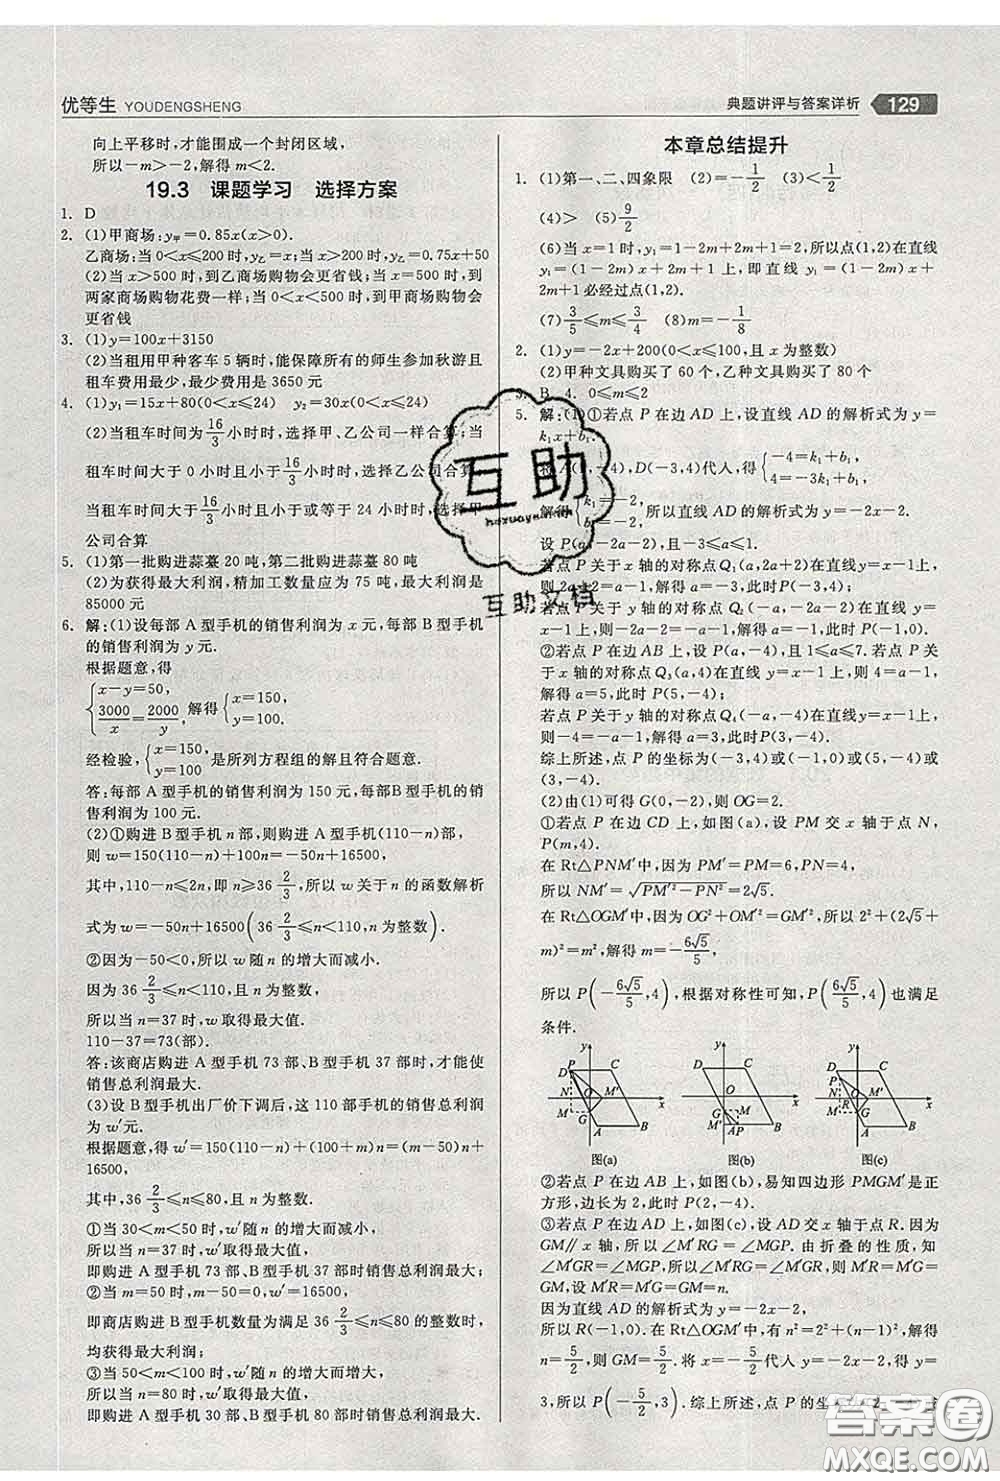 优等生 YOUDENGSHENG
典题讲评与答案详析 129
向上平移时,才能围成一个封闭区域,
所以-m>-2,解得 m<2.
19.3 课题学习 选择方案
1. D
2. (1)甲商场:y甲=0.85x(x>0).
乙商场:当 0<x≤200 时,y乙=x;当 x>200 时,y乙=0.75x+50
(2)当 x>500 时,到乙商场购物会更省钱;当 x=500 时,到
两家商场购物花费一样;当 0<x<500 时,到甲商场购物会
更省钱
3. (1)y=100x+3150
(2)当租用甲种客车 5 辆时,能保障所有的师生参加秋游且
租车费用最少,最少费用是 3650 元
4. (1)y₁=15x+80(0<x≤24) y₂=30x(0<x≤24)
(2)当租车时间为 16/3 小时时,选择甲、乙公司一样合算;当
租车时间大于 0 小时且小于 16/3 小时时,选择乙公司合算;
当租车时间大于 16/3 小时且小于或等于 24 小时时,选择甲
公司合算
5. (1)第一批购进蒜薹 20 吨,第二批购进蒜薹 80 吨
(2)为获得最大利润,精加工数量应为 75 吨,最大利润是
85000 元
6. 解:(1)设每部 A 型手机的销售利润为 x 元,每部 B 型手机
的销售利润为 y 元.
根据题意,得
{x-y=50, 3000/x=2000/y, 解得{x=150, y=100.
经检验,{x=150, y=100 是所列方程组的解且符合题意.
答:每部 A 型手机的销售利润为 150 元,每部 B 型手机的销
售利润为 100 元.
(2)①购进 B 型手机 n 部,则购进 A 型手机(110-n)部,
则 w=150(110-n)+100n=-50n+16500,
其中,110-n≤2n,即 n≥36 2/3,所以 w 关于 n 的函数解析
式为 w=-50n+16500(36 2/3≤n<110,且 n 为整数).
②因为-50<0,所以 w 随 n 的增大而减小.
因为 36 2/3≤n<110,且 n 为整数,
所以当 n=37 时,w 取得最大值.
110-37=73(部).
答:该商店购进 A 型手机 73 部、B 型手机 37 部时,才能使
销售总利润最大.
(3)设 B 型手机出厂价下调后,这 110 部手机的销售总利润
为 w′元.
根据题意,得 w′=150(110-n)+(100+m)n=(m-50)n+
16500,
其中,36 2/3≤n≤80,且 n 为整数.
①当 30<m<50 时,w′随 n 的增大而减小,
所以当 n=37 时,w′取得最大值,
即购进 A 型手机 73 部、B 型手机 37 部时销售总利润最大;
②当 m=50 时,m-50=0,w′=16500,
即商店购进 B 型手机数量为满足 36 2/3≤n≤80 的整数时,
均获得最大利润;
③当 50<m<100 时,w′随 n 的增大而增大,
所以当 n=80 时,w′取得最大值,
即购进 A 型手机 30 部、B 型手机 80 部时销售总利润最大.
本章总结提升
1. (1)第一、二、四象限 (2)=-1/2 (3)<-1/2
(4)> (5)9/2
(6)当 x=1 时,y₁=1-2m+2m+1=2,所以点(1,2)在直线
y₁=(1-2m)x+2m+1 上,即直线 y₁=(1-2m)x+
2m+1 必经过点(1,2).
(7)3/5≤m≤3/4 (8)m=-1/8
2. (1)y=-2x+200(0<x≤100,且 x 为整数)
(2)甲种文具购买了 60 个,乙种文具购买了 80 个
3. B 4. 0≤m≤2
5. 解:(1)①若点 P 在边 AD 上,设直线 AD 的解析式为 y=
k₁x+b₁.
将 A(1,-4),D(-3,4)代入,得{-4=k₁+b₁, 4=-3k₁+b₁,
解得{k₁=-2, b₁=-2, 所以直线 AD 的解析式为 y=-2x-2.
设 P(a,-2a-2),且-3≤a≤1.
若点 P 关于 x 轴的对称点 Q₁(a,2a+2)在直线 y=x-1上,
则 2a+2=a-1,解得 a=-3,此时P(-3,4);
若点 P 关于 y 轴的对称点 Q₂(-a,-2a-2)在直线 y=
x-1上,则-2a-2=-a-1,解得 a=-1,此时 P(-1,0).
②若点 P 在边 AB 上,设 P(a,-4),且 1≤a≤7. 若点 P 关
于 x 轴的对称点 Q₃(a,4)在直线 y=x-1上,则 4=a-1,
解得 a=5,此时 P(5,-4);
若点 P 关于 y 轴的对称点 Q₄(-a,-4)在直线 y=x-1上,
则-4=-a-1,解得 a=3,此时 P(3,-4).
综上所述,点 P 的坐标为(-3,4)或(-1,0)或(5,-4)或
(3,-4).
(2)由(1)可得 G(0,-2),因此 OG=2.
①若点 P 在边 CD 上,如图(a),设 PM 交 x 轴于点 N,
P(m,4).
在 Rt△PNM′中,因为 PM′=PM=6,PN=4,
所以 NM′=√(PM′²-PN²)=2√5.
在 Rt△OGM′中,因为 OG²+OM′²=GM′²,所以 2²+(2√5+
m)²=m²,解得 m=-6√5/5,
所以 P(-6√5/5,4),根据对称性可知,P(6√5/5,4)也满足
条件.
y D P C O M′ x M G A B 图(a)
y D C O x M G M′ A P B 图(b)
y D C P O M′ x M R G A B 图(c)
②若点 P 在边 AB 上,如图(b),易知四边形 PMGM′是正
方形,边长为 2,此时 P(2,-4).
③若点 P 在边 AD 上,如图(c),设 AD 交 x 轴于点 R. 因为
GM∥x 轴,所以∠M′RG=∠MGP. 由折叠的性质,得
∠M′GR=∠MGP,所以∠M′RG=∠M′GR,则 M′R=M′G=
GM,设 M′R=M′G=GM=n.
因为直线 AD 的解析式为 y=-2x-2,
所以 R(-1,0). 在 Rt△OGM′中,有 n²=2²+(n-1)²,解得
n=5/2,则 GM=5/2. 将 x=-5/2代入 y=-2x-2,得 y=
3,所以 P(-5/2,3). 综上所述,点 P 的坐
互助
互助文档
答案圈
MXQE.COM